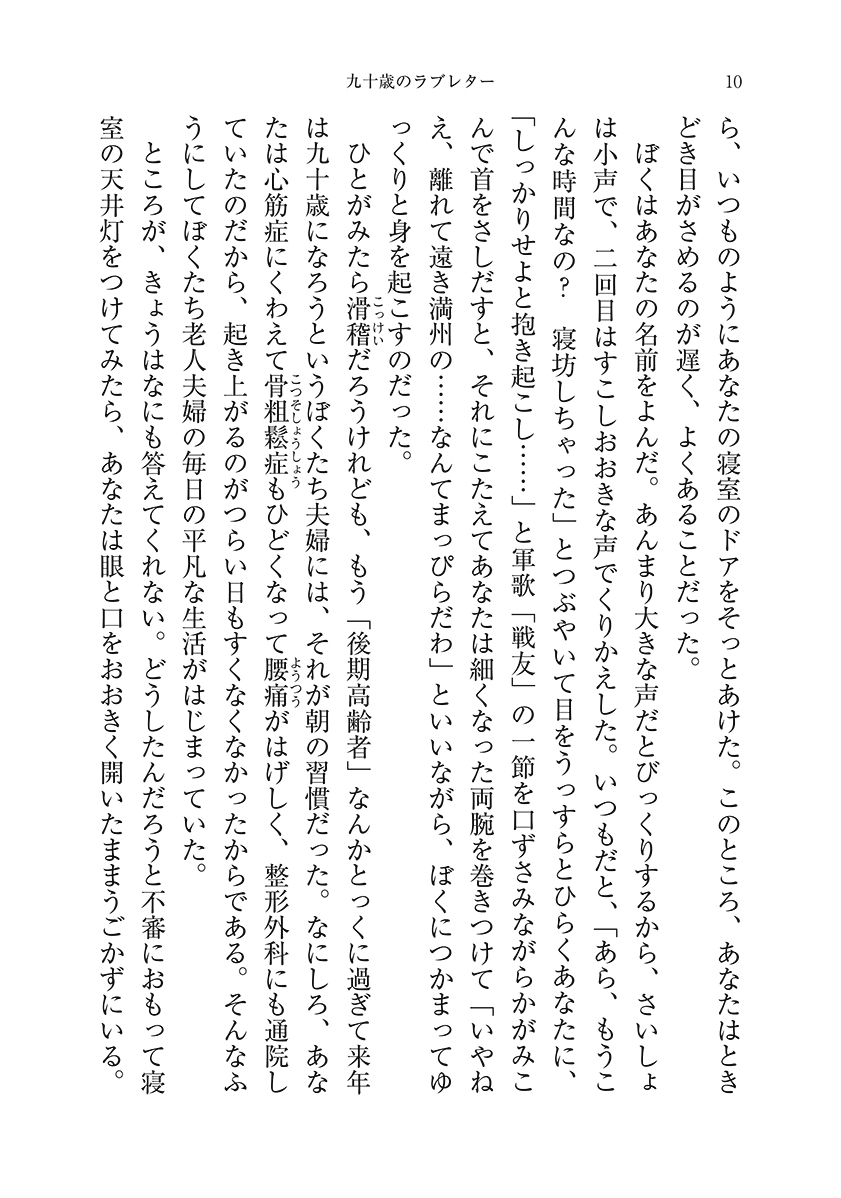 九十歳のラブレター
10
ら、いつものようにあなたの寝室のドアをそっとあけた。このところ、あなたはとき
どき目がさめるのが遅く、よくあることだった。
ぼくはあなたの名前をよんだ。あんまり大きな声だとびっくりするから、さいしょ
は小声で、二回目はすこしおおきな声でくりかえした。いつもだと、「あら、もうこ
んな時間なの? 寝坊しちゃった」とつぶやいて目をうっすらとひらくあなたに、
「しっかりせよと抱き起こし……」と軍歌「戦友」の一節を口ずさみながらかがみこ
んで首をさしだすと、それにこたえてあなたは細くなった両腕を巻きつけて「いやね
え、離れて遠き満州の……なんてまっぴらだわ」といいながら、ぼくにつかまってゆ
っくりと身を起こすのだった。
ひとがみたら滑稽だろうけれども、もう「後期高齢者」なんかとっくに過ぎて来年
こっけい
は九十歳になろうというぼくたち夫婦には、それが朝の習慣だった。なにしろ、あな
たは心筋症にくわえて骨粗鬆症もひどくなって腰痛がはげしく、整形外科にも通院し
こつそしょうしょう
ようつう
ていたのだから、起き上がるのがつらい日もすくなくなかったからである。そんなふ
うにしてぼくたち老人夫婦の毎日の平凡な生活がはじまっていた。
ところが、きょうはなにも答えてくれない。どうしたんだろうと不審におもって寝
室の天井灯をつけてみたら、あなたは眼と口をおおきく開いたままうごかずにいる。